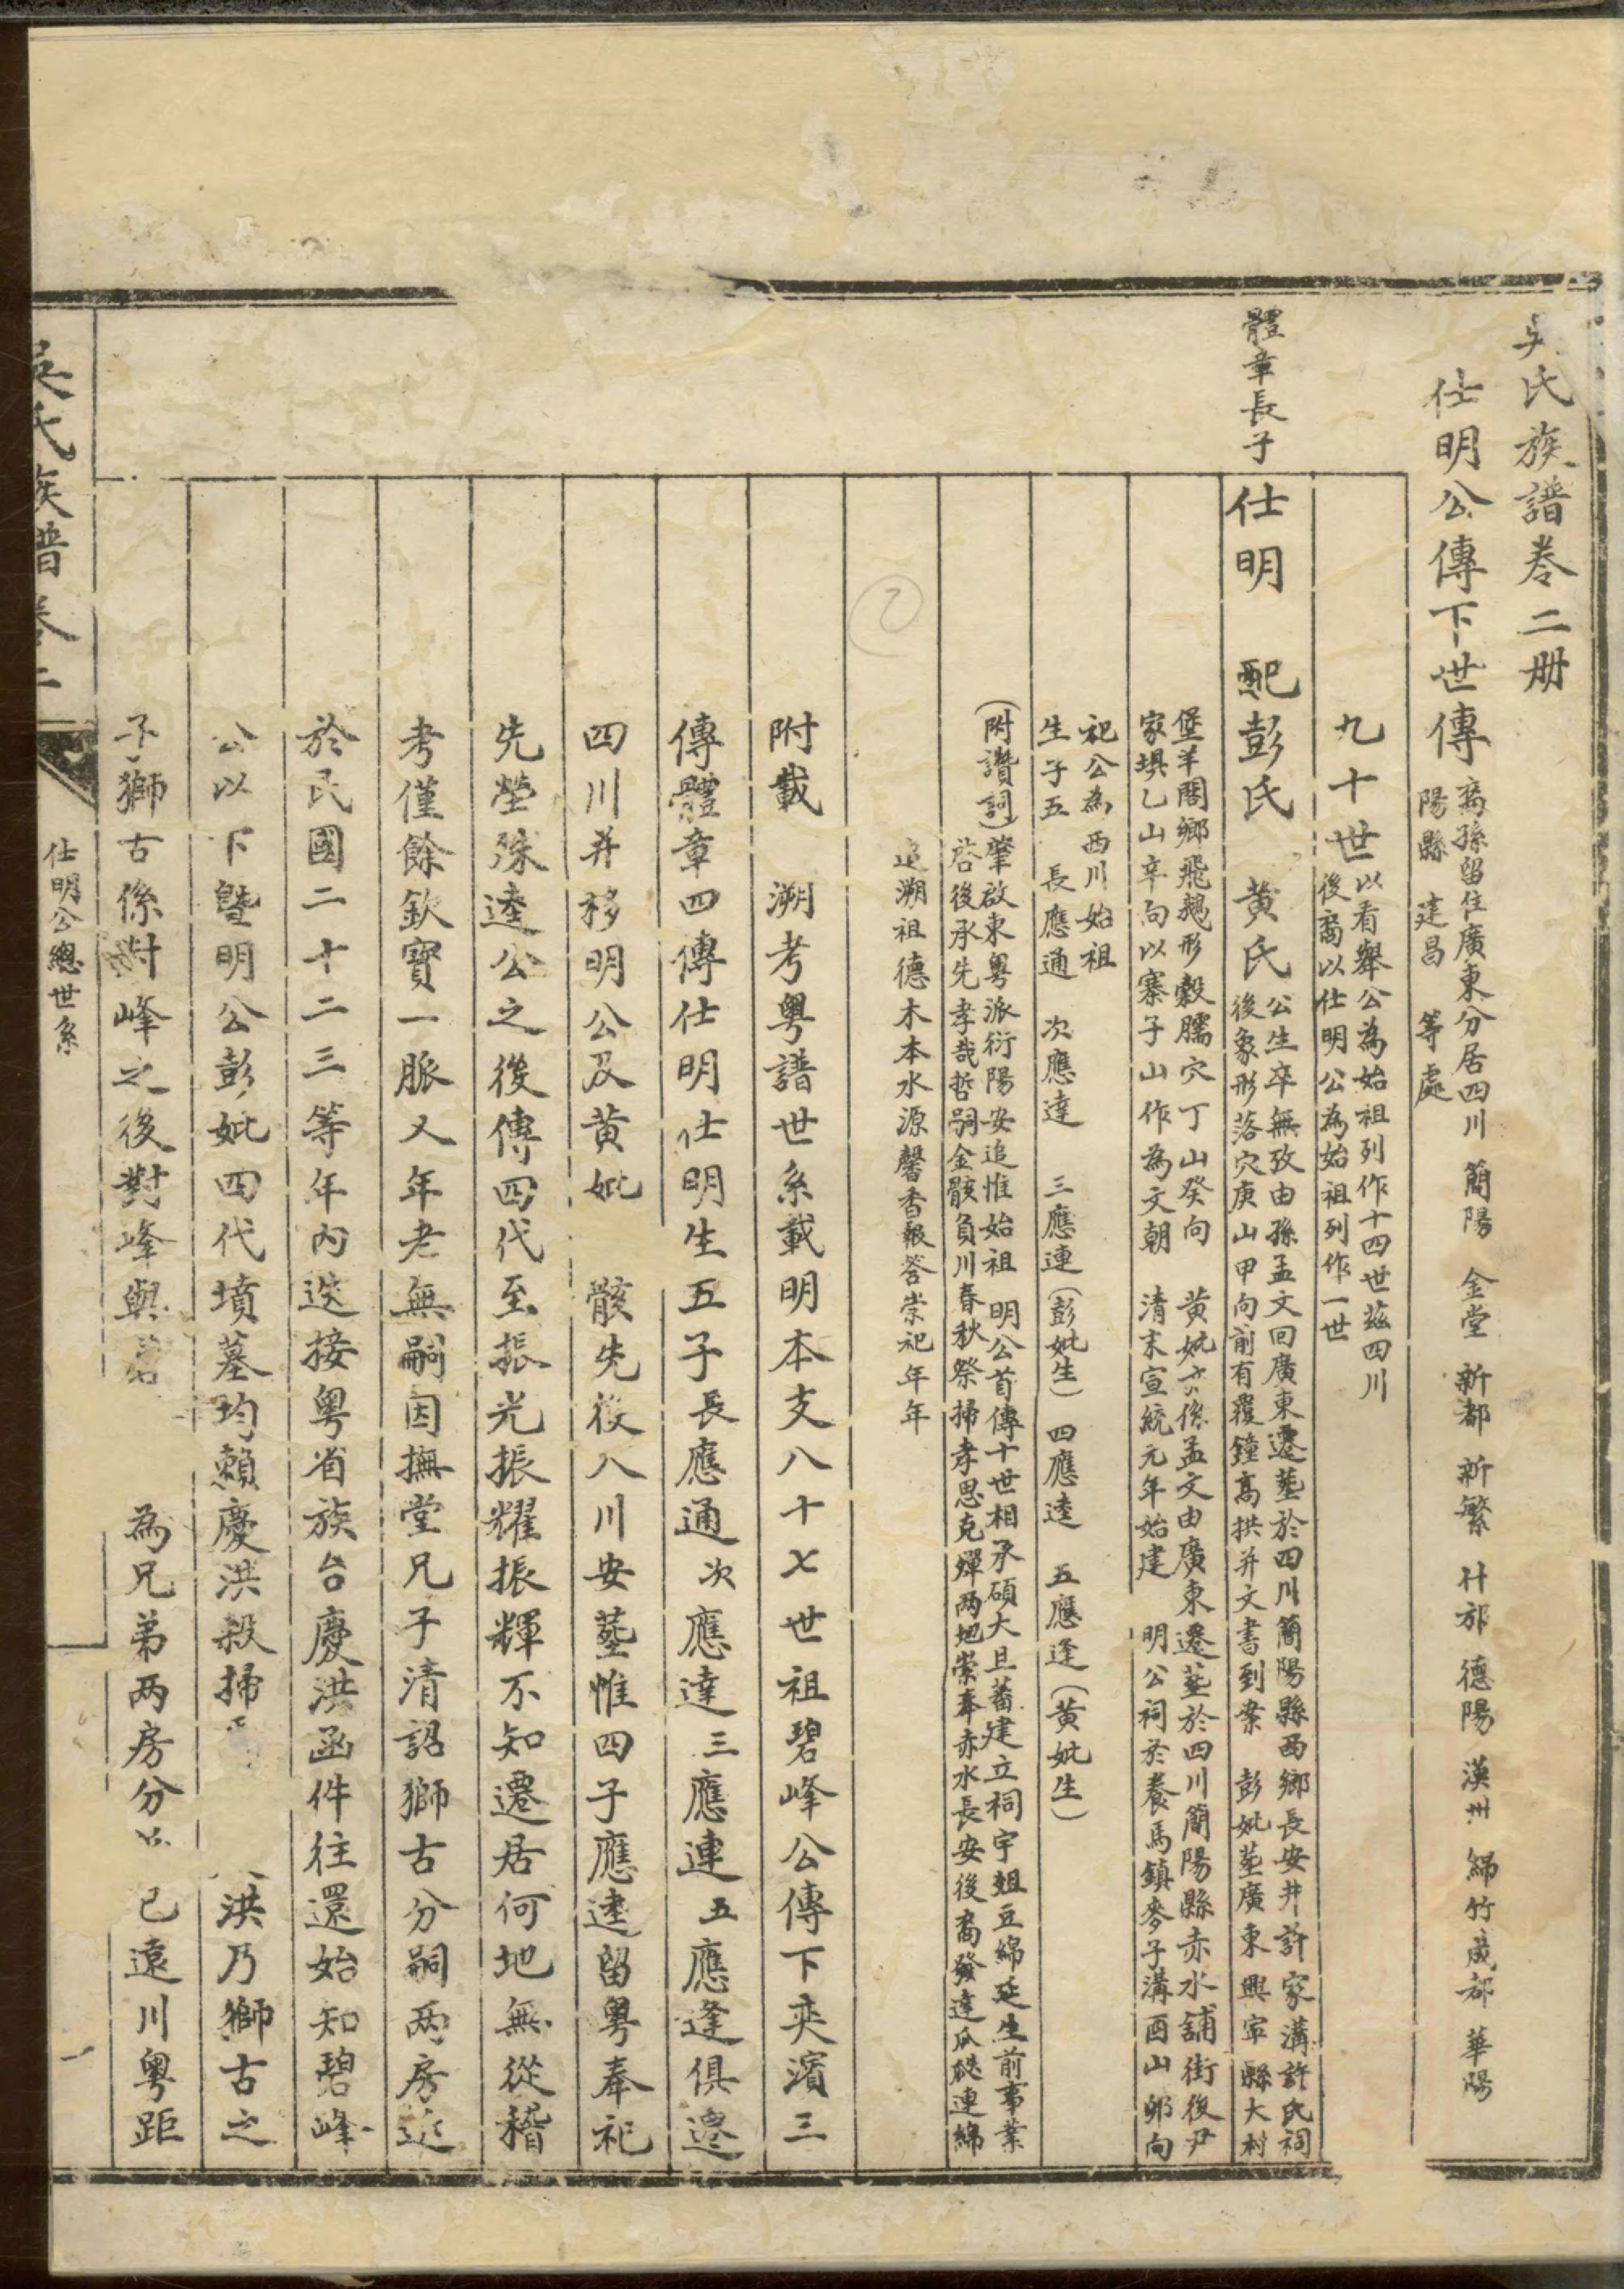 吳氏族譜卷二册
仕明公傳下世傳
裔孫留住廣東分居四川 簡陽 金堂 新都 新繁 什邡 德陽 漢州 綿竹 成都 華陽
陽縣 建昌 等處
九十世
以看舉公為始祖列作十四世茲四川
後裔以仕明公為始祖列作一世
體章長子
仕明 配彭氏 黄氏
公生卒無攷由孫孟文回廣東遷塟於四川簡陽縣西鄉長安井許家溝許氏祠
後象形落穴庚山甲向前有覆鐘高拱并文書到案 彭妣塟廣東興寧縣大村
堡羊閣鄉飛鵝形穀臑穴丁山癸向 黄妣亦係孟文由廣東遷塟於四川簡陽縣赤水舖街後尹
家埧乙山辛向以寨子山作為文朝 清末宣統元年始建 明公祠於養馬鎮麥子溝酉山卯向
祀公為西川始祖
生子五 長應通 次應達 三應連(彭妣生) 四應逵 五應逢(黄妣生)
(附讚詞)肇啟東粵派衍陽安追惟始祖 明公首傳十世相承碩大且蕃建立祠宇俎豆綿延生前事業
啓後承先孝哉哲嗣金骸負川春秋祭掃孝思克殫兩地崇奉赤水長安後裔發達瓜瓞連綿
追溯祖德木本水源馨香報答崇祀年年
附載 溯考粤譜世系載明本支八十七世祖碧峰公傳下奕濱三
傳體章四傳仕明仕明生五子長應通次應達三應連五應逢俱遷
四川并移明公及黄妣 骸先後入川安塟惟四子應逵留粤奉祀
先塋殊逵公之後傳四代至振光振耀振輝不知遷居何地無從稽
考僅餘欽寳一脈又年老無嗣因撫堂兄子清詔獅古分嗣兩房遂
於民國二十二三等年内迭接粤省族台慶洪函件往還始知碧峰
公以下曁明公彭妣四代墳墓均賴慶洪殺掃 洪乃獅古之
子獅古係對峰之後對峰與碧 為兄弟两房分 已遠川粤距
吳氏族譜卷二
仕明公總世系
一